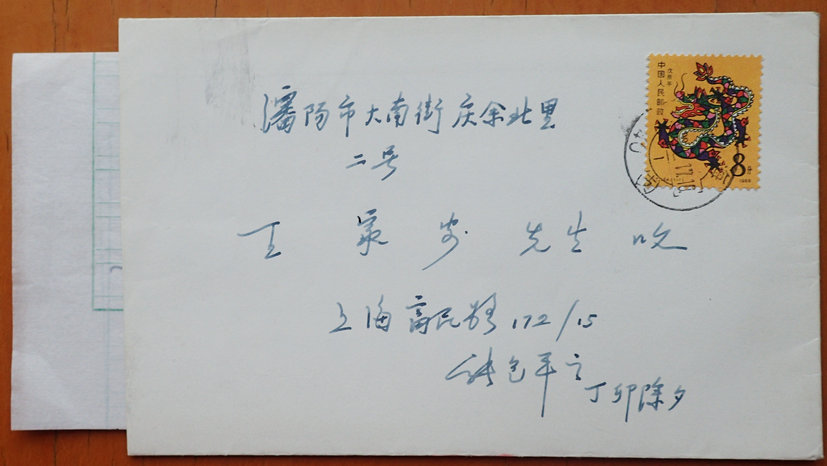 瀋阳市大南街庆余北里
二号
王 先生 收
上海富民路172/15
丁卯除夕
戊辰年
中国人民邮政
8分
1988